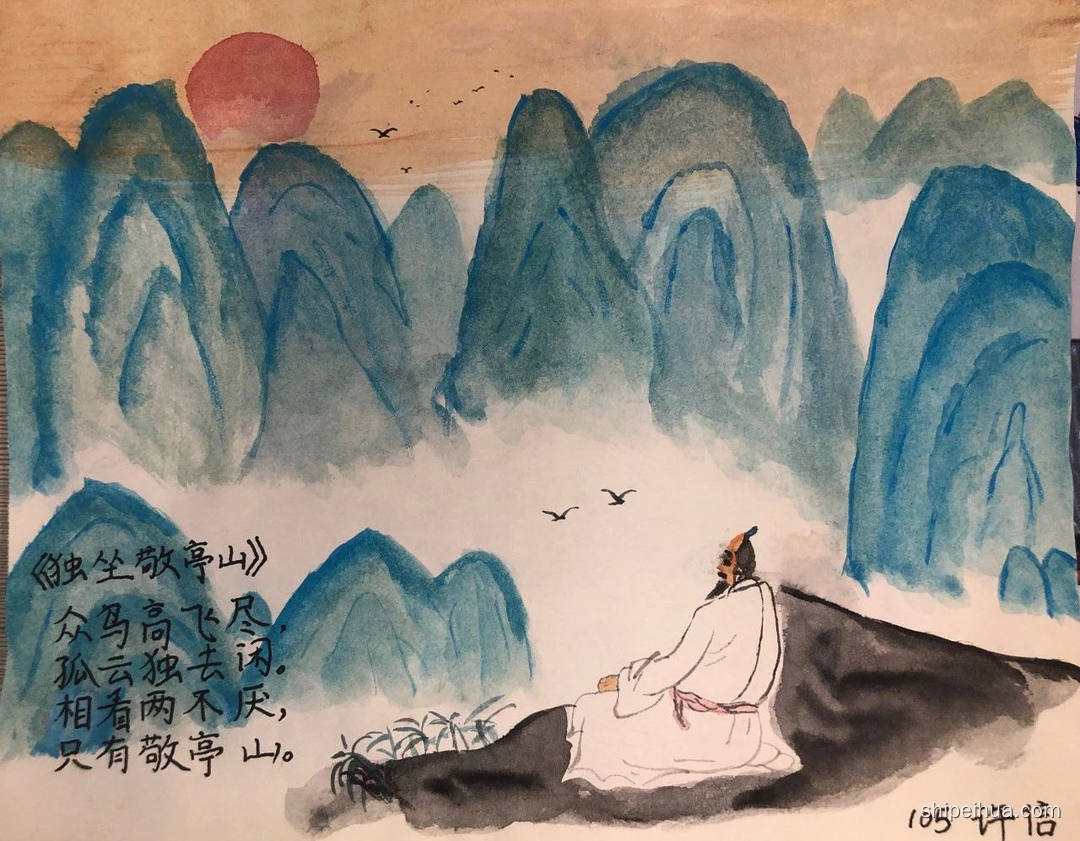 《独坐敬亭山》
众鸟高飞尽,
孤云独去闲。
相看两不厌,
只有敬亭山。
105 许倍
shipeihua.com